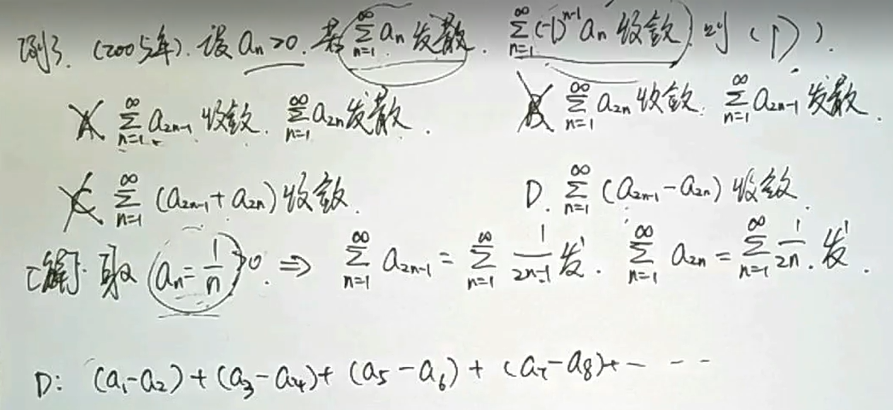 例3. (2005年). 设 aₙ>0. 若 ∑_{n=1}^{∞} aₙ 发散. ∑_{n=1}^{∞} (-1)^{n-1} aₙ 收敛. 则 (D).
A ∑_{n=1}^{∞} a_{2n-1} 收敛. ∑_{n=1}^{∞} a_{2n} 发散. B ∑_{n=1}^{∞} a_{2n} 收敛. ∑_{n=1}^{∞} a_{2n-1} 发散.
C ∑_{n=1}^{∞} (a_{2n-1}+a_{2n}) 收敛. D. ∑_{n=1}^{∞} (a_{2n-1}-a_{2n}) 收敛.
[解]: 取 aₙ=1/n>0. ⇒ ∑_{n=1}^{∞} a_{2n-1} = ∑_{n=1}^{∞} 1/(2n-1) 发. ∑_{n=1}^{∞} a_{2n} = ∑_{n=1}^{∞} 1/(2n). 发.
D: (a₁-a₂)+(a₃-a₄)+(a₅-a₆)+(a₇-a₈)+- - -